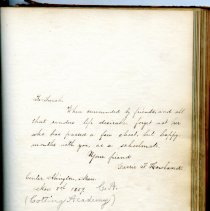 To Sarah.
When surrounded by friends, and all
that renders life desirable forget not her
who has passed a few short, but happy
months with you as a schoolmate.
Your friend
Carrie F.
Center Abington, Mass.
Nov. 8th 1859. C.A.
(Cotting Academy)